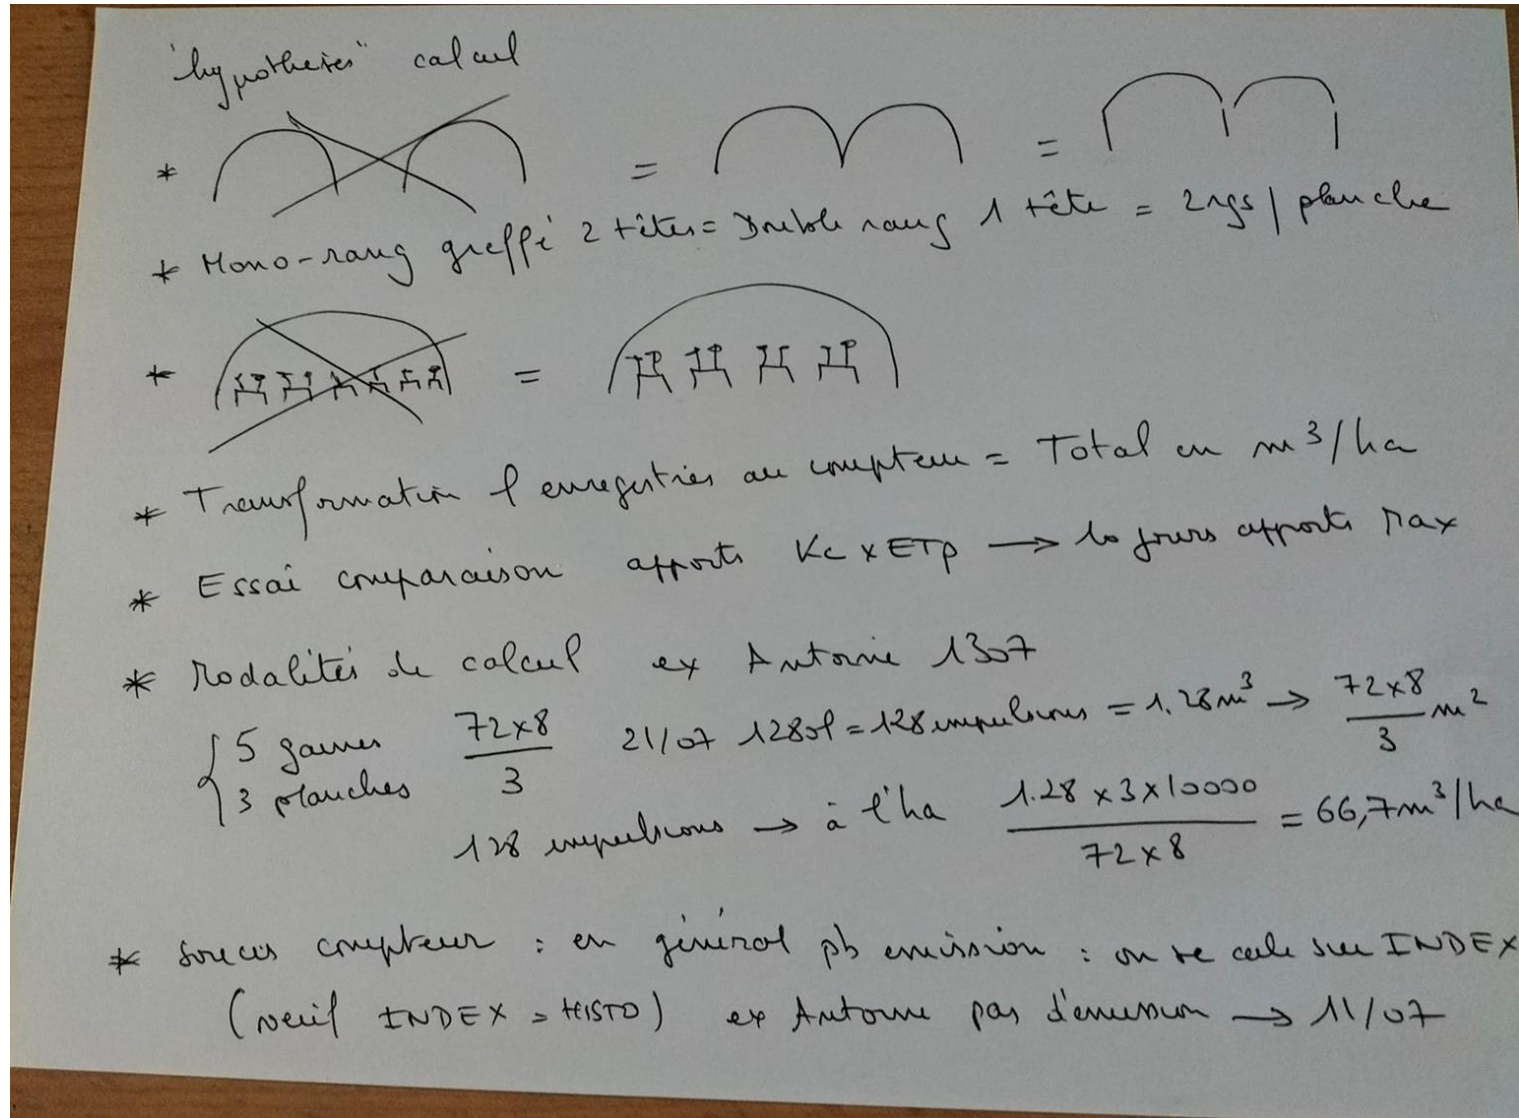 "hypothèses" calcul
* = =
* Mono-rang greffé 2 têtes = Double rang 1 tête = 2rgs / planche
* =
* Transformation l enregistrés au compteur = Total en m³/ha
* Essai comparaison apports Kc x ETp → 10 jours apports Max
* Modalités de calcul ex Antoine 1307
{ 5 gaines 72x8/3 21/07 1280l = 128 impulsions = 1.28m³ → 72x8/3 m²
3 planches
128 impulsions → à l'ha 1.28 x 3 x 10000 / 72 x 8 = 66,7m³/ha
* Soucis compteur : en général pb émission : on se cale sur INDEX
(vérif INDEX = HISTO) ex Antoine pas d'émission → 11/07